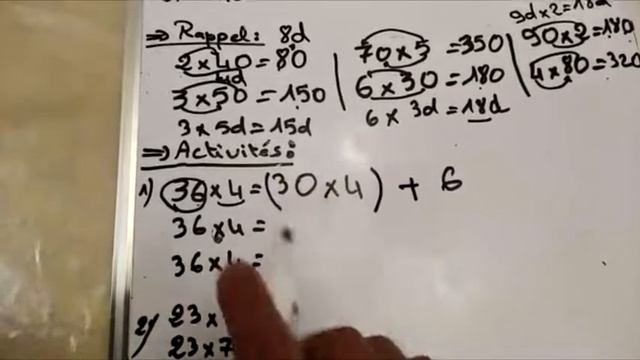 ⇒ Rappel: 8d
2 × 40 = 80
4d
3 × 50 = 150
3 × 5d = 15d
70 × 5 = 350
6 × 30 = 180
6 × 3d = 18d
9d × 2 = 18d
90 × 2 = 180
4 × 80 = 320
⇒ Activités:
1) 36 × 4 = (30 × 4) + 6
36 × 4 =
36 × 4 =
2) 23 ×
23 × 7